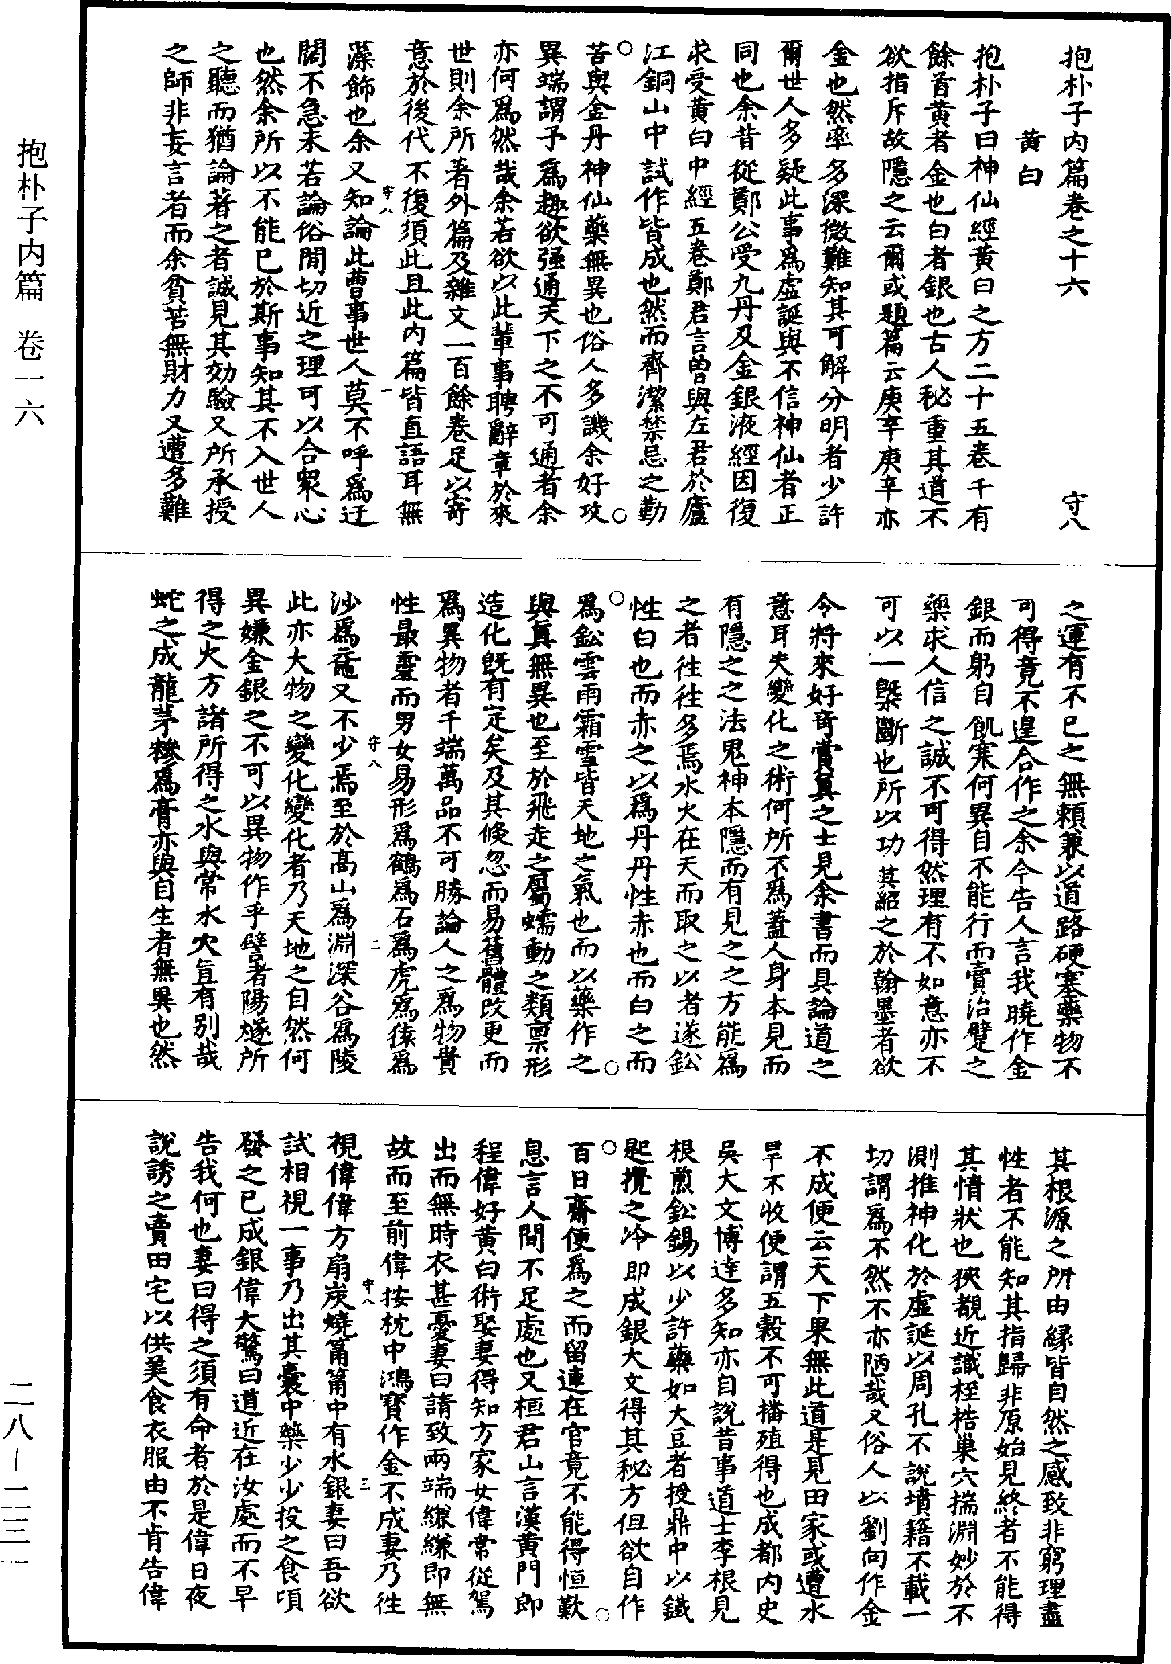 抱朴子内篇卷之十六
守八
黄白
抱朴子曰神仙經黄白之方二十五卷千有
餘首黄者金也白者銀也古人秘重其道不
欲指斥故隱之云爾或題篇云庚辛庚辛亦
金也然率多深微難知其可解分明者少許
爾世人多疑此事爲虛誕與不信神仙者正
同也余昔從鄭公受九丹及金銀液經因復
求受黄白中經五卷鄭君言曾與左君於廬
江銅山中試作皆成也然而齊潔禁忌之勤
苦與金丹神仙藥無異也俗人多譏余好攻
異端謂予爲趣欲强通天下之不可通者余
亦何爲然哉余若欲以此輩事聘辭章於來
世則余所著外篇及雜文一百餘卷足以寄
意於後代不復須此且此内篇皆直語耳無
守八
一
藻飾也余又知論此曹事世人莫不呼爲迂
闊不急未若論俗間切近之理可以合衆心
也然余所以不能已於斯事知其不入世人
之聽而猶論著之者誠見其効驗又所承授
之師非妄言者而余貧苦無財力又遭多難
之運有不已之無賴兼以道路硬塞藥物不
可得竟不遑合作之余今告人言我曉作金
銀而躬自飢寒何異自不能行而賣治躄之
藥求人信之誠不可得然理有不如意亦不
可以一槩斷也所以功其紹之於翰墨者欲
令將來好奇賞真之士見余書而具論道之
意耳夫變化之術何所不爲蓋人身本見而
有隱之之法鬼神本隱而有見之之方能爲
之者往往多焉水火在天而取之以者遂鈆
性白也而赤之以爲丹丹性赤也而白之而
爲鈆雲雨霜雪皆天地之氣也而以藥作之
與真無異也至於飛走之屬蠕動之類禀形
造化旣有定矣及其倏忽而易舊體改更而
爲異物者千端萬品不可勝論人之爲物貴
性最靈而男女易形爲鶴爲石爲虎爲猿爲
守八
二
沙爲黿又不少焉至於高山爲淵深谷爲陵
此亦大物之變化變化者乃天地之自然何
異嫌金銀之不可以異物作乎譬者陽燧所
得之火方諸所得之水與常水火豈有别哉
蛇之成龍茅糝爲膏亦與自生者無異也然
其根源之所由緣皆自然之感致非窮理盡
性者不能知其指歸非原始見終者不能得
其情狀也狹觀近識桎梏巢穴揣淵妙於不
測推神化於虛誕以周孔不說墳籍不載一
切謂爲不然不亦陋哉又俗人以劉向作金
不成便云天下果無此道是見田家或遭水
旱不收便謂五穀不可播殖得也成都内史
吳大文博達多知亦自說昔事道士李根見
根煎鈆錫以少許藥如大豆者授鼎中以鐵
匙攪之冷即成銀大文得其秘方但欲自作
百日齋便爲之而留連在官竟不能得恒歎
息言人間不足處也又桓君山言漢黄門郎
程偉好黄白術娶妻得知方家女偉常從駕
出而無時衣甚憂妻曰請致兩端縑縑即無
故而至前偉按枕中鴻寶作金不成妻乃往
守八
三
視偉偉方扇炭燒筩筩中有水銀妻曰吾欲
試相視一事乃出其囊中藥少少投之食頃
發之已成銀偉大驚曰道近在汝處而不早
告我何也妻曰得之須有命者於是偉日夜
說誘之賣田宅以供美食衣服由不肯告偉
抱朴子内篇 卷一六
二八—二三一